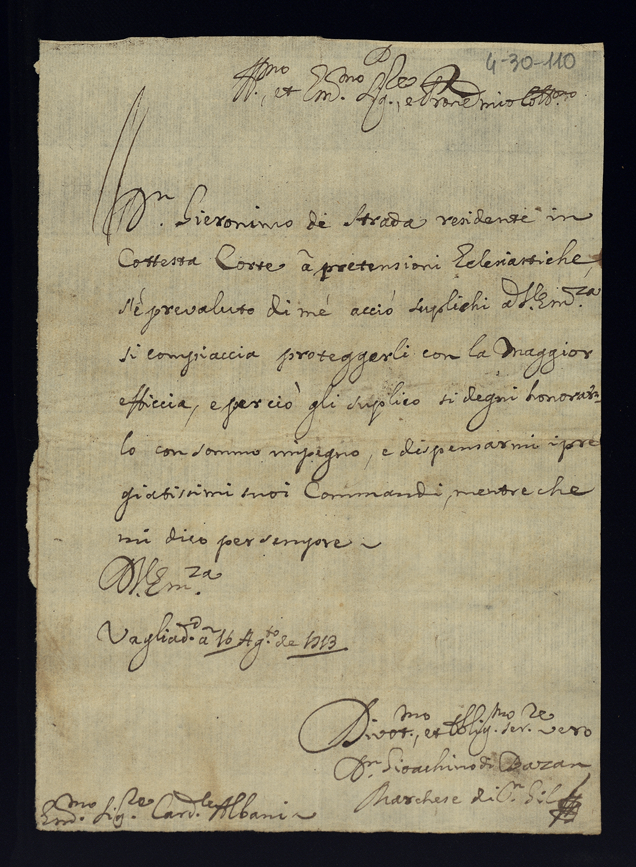 4-30-110
Ill.mo, et Em.mo Sig.re, e Prone mio Coll.mo
Dn. Gieronimo de Strada residente in
Cottesta Corte à pretensioni Eclesiastiche,
s'è prevaluto di mé acciò suplichi a V. Em.za
si compiaccia proteggerli con la Maggior
efficcia, e perciò gli suplico si degni honorar-
lo con sommo impegno, e dispensarmi i pre
giatissimi suoi Commandi, mentre che
mi dico per sempre
D. V. Em.za
Vagliad.d à 16 Ag.to de 1713
Divot.mo, et Oblig.mo ser.re vero
Dn. Gioachino di Bazan
Marchese di Sn. Gil
Em.mo Sig.re Card.le Albani